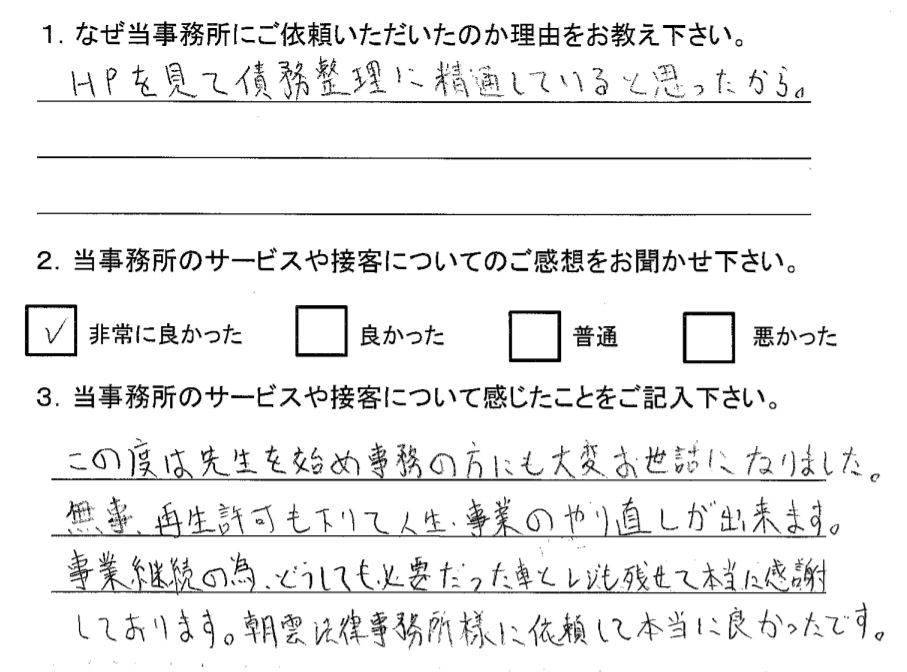 1. なぜ当事務所にご依頼いただいたのか理由をお教え下さい。
HPを見て債務整理に精通していると思ったから。
2. 当事務所のサービスや接客についてのご感想をお聞かせ下さい。
✓ 非常に良かった 良かった 普通 悪かった
3. 当事務所のサービスや接客について感じたことをご記入下さい。
この度は先生を始め事務の方にも大変お世話になりました。
無事、再生許可も下りて人生・事業のやり直しが出来ます。
事業継続の為、どうしても必要だった車とレジも残せて本当に感謝
しております。朝雲法律事務所様に依頼して本当に良かったです。